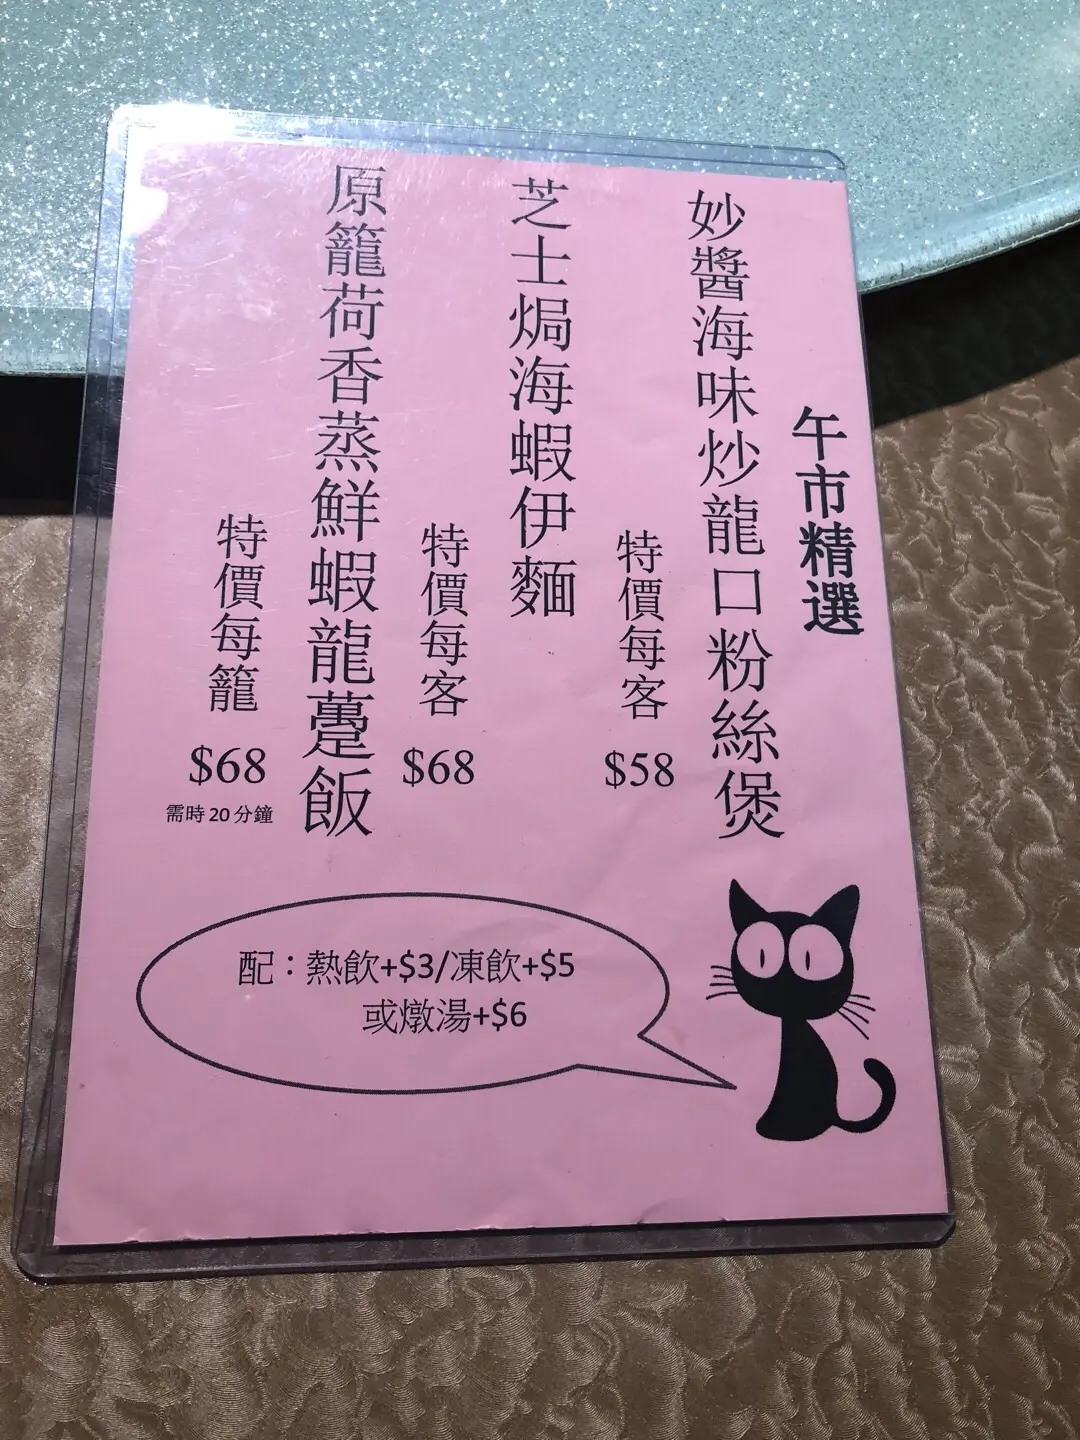 午市精選
妙醬海味炒龍口粉絲煲
特價每客
$58
芝士焗海蝦伊麵
特價每客
$68
原籠荷香蒸鮮蝦龍躉飯
特價每籠
$68
需時20分鐘
配：熱飲+$3/凍飲+$5
或燉湯+$6